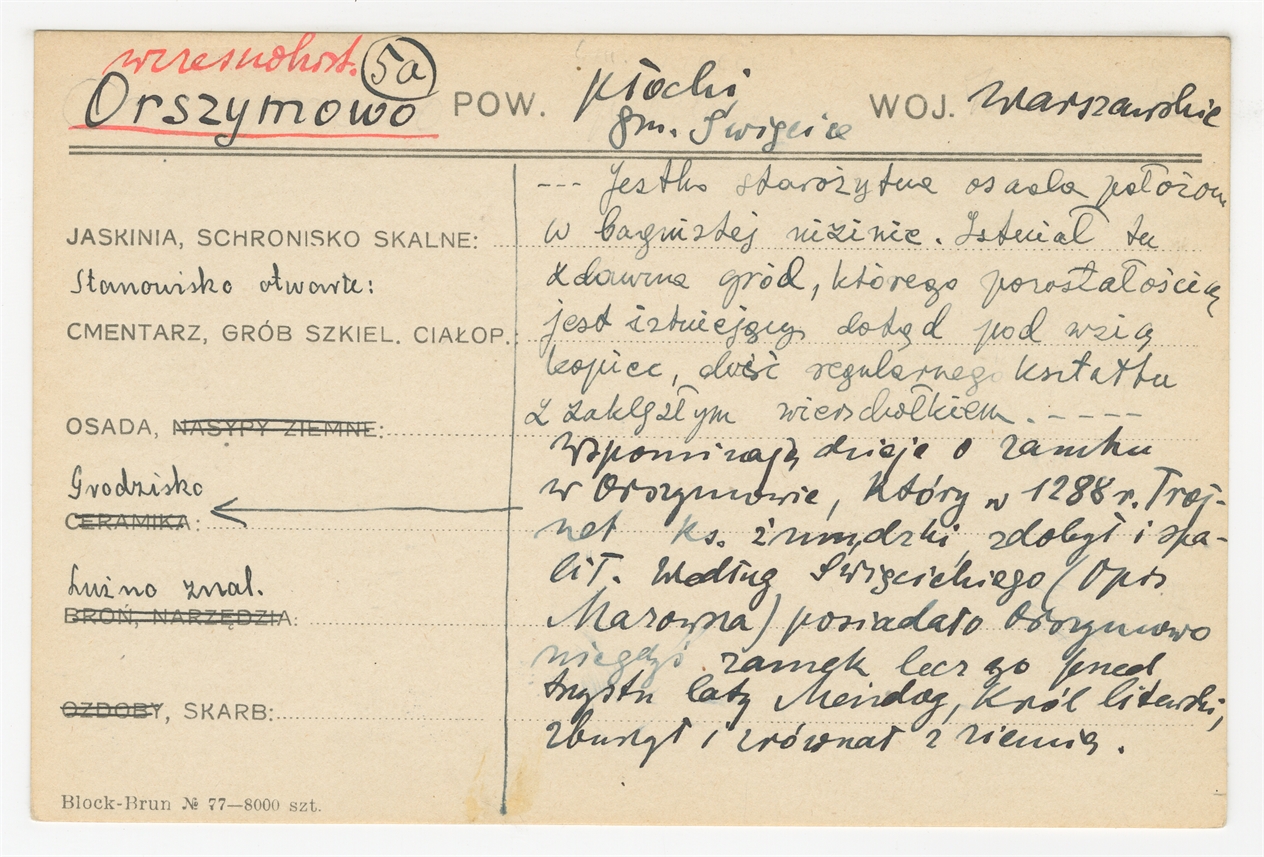 wczesnohist.
5a
Orszymowo POW. płocki WOJ. Warszawskie
gm. Święcice
JASKINIA, SCHRONISKO SKALNE:
Stanowisko otwarte:
CMENTARZ, GRÓB SZKIEL. CIAŁOP.:
OSADA, NASYPY ZIEMNE:
Grodzisko
CERAMIKA:
Luźno znal.
BROŃ, NARZĘDZIA:
OZDOBY, SKARB:
Block-Brun № 77—8000 szt.
--- Jestto starożytna osada położona
w bagnistej nizinie. Istniał tu
zdawna gród, którego pozostałością
jest istniejący dotąd pod wsią
kopiec, dość regularnego kształtu
z zaklęsłym wierzchołkiem. - - - -
Wspominają dzieje o zamku
w Orszymowie, który w 1288 r. Troj-
nat ks. żmudzki zdobył i spa-
lił. Według Święcickiego (Opis
Mazowsza) posiadało Orszymowo
niegdyś zamek lecz go przed
trzystu laty Mendog, Król litewski,
zburzył i zrównał z ziemią.